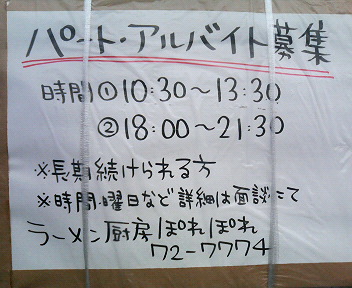 パート・アルバイト募集
時間①10:30～13:30
②18:00～21:30
※長期続けられる方
※時間・曜日など詳細は面談にて
ラーメン厨房ぽれぽれ
72-7774